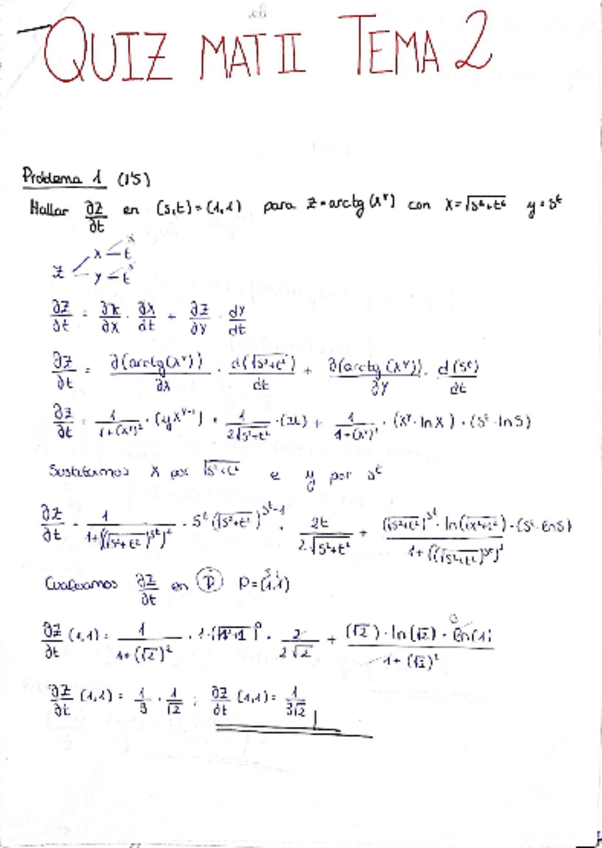 QUIZ MAT II TEMA 2
Problema 1 (1'5)
Hallar ∂z/∂t en (s,t)=(1,1) para z=arctg(x^y) con x=√(s²+t²) y=s^t
z x t y t
∂z/∂t = ∂z/∂x · ∂x/∂t + ∂z/∂y · dy/dt
∂z/∂t = ∂(arctg(x^y))/∂x · d(√(s²+t²))/dt + ∂(arctg(x^y))/∂y · d(s^t)/dt
∂z/∂t = 1/(1+(x^y)²) · (yx^(y-1)) · 1/(2√(s²+t²)) · (2t) + 1/(1+(x^y)²) · (x^y · ln x) · (s^t · ln s)
Sustituimos x por √(s²+t²) e y por s^t
∂z/∂t = 1/(1+((√(s²+t²))^(s^t))²) · s^t (√(s²+t²))^(s^t-1) · 2t/(2√(s²+t²)) + ((√(s²+t²))^(s^t) · ln(√(s²+t²)) · (s^t · ln s))/(1+((√(s²+t²))^(s^t))²)
Evaluamos ∂z/∂t en P P=(1,1)
∂z/∂t (1,1) = 1/(1+(√2)²) · 1·(√(1+1))^0 · 2/(2√2) + ((√2) · ln(√2) · ln(1))/(1+(√2)²)
∂z/∂t (1,1) = 1/3 · 1/√2 ; ∂z/∂t (1,1) = 1/(3√2)